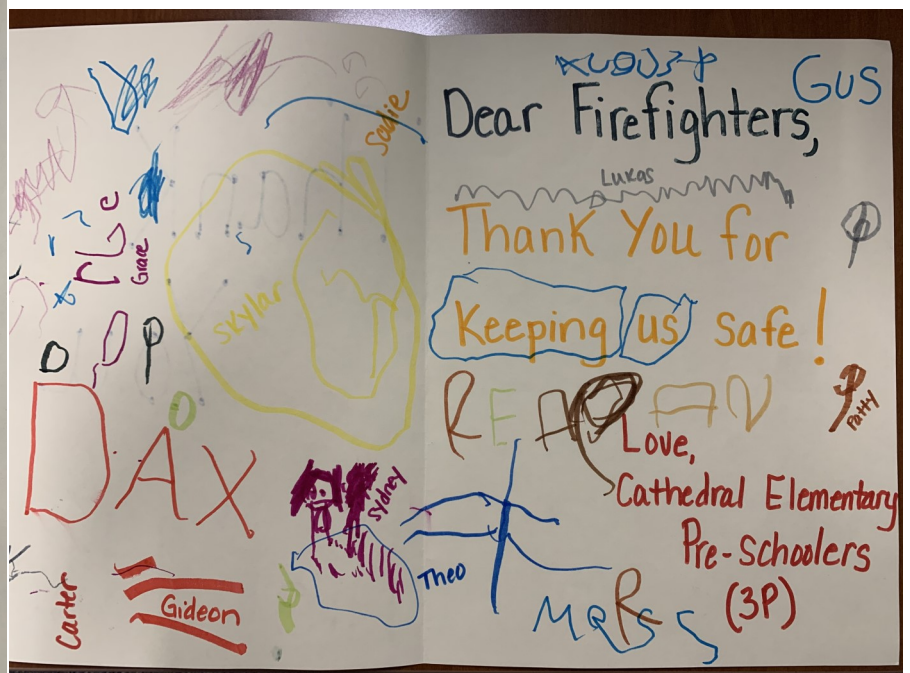 Sadie
Grace
Skylar
DAX
Sydney
Theo
Carter
Gideon
Gus
Dear Firefighters,
Lukas
Thank You for
Keeping us safe!
Patty
Love,
Cathedral Elementary
Pre-Schoolers
(3P)